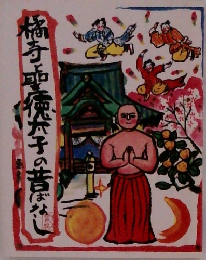 橘寺と聖徳太子の昔ばなし